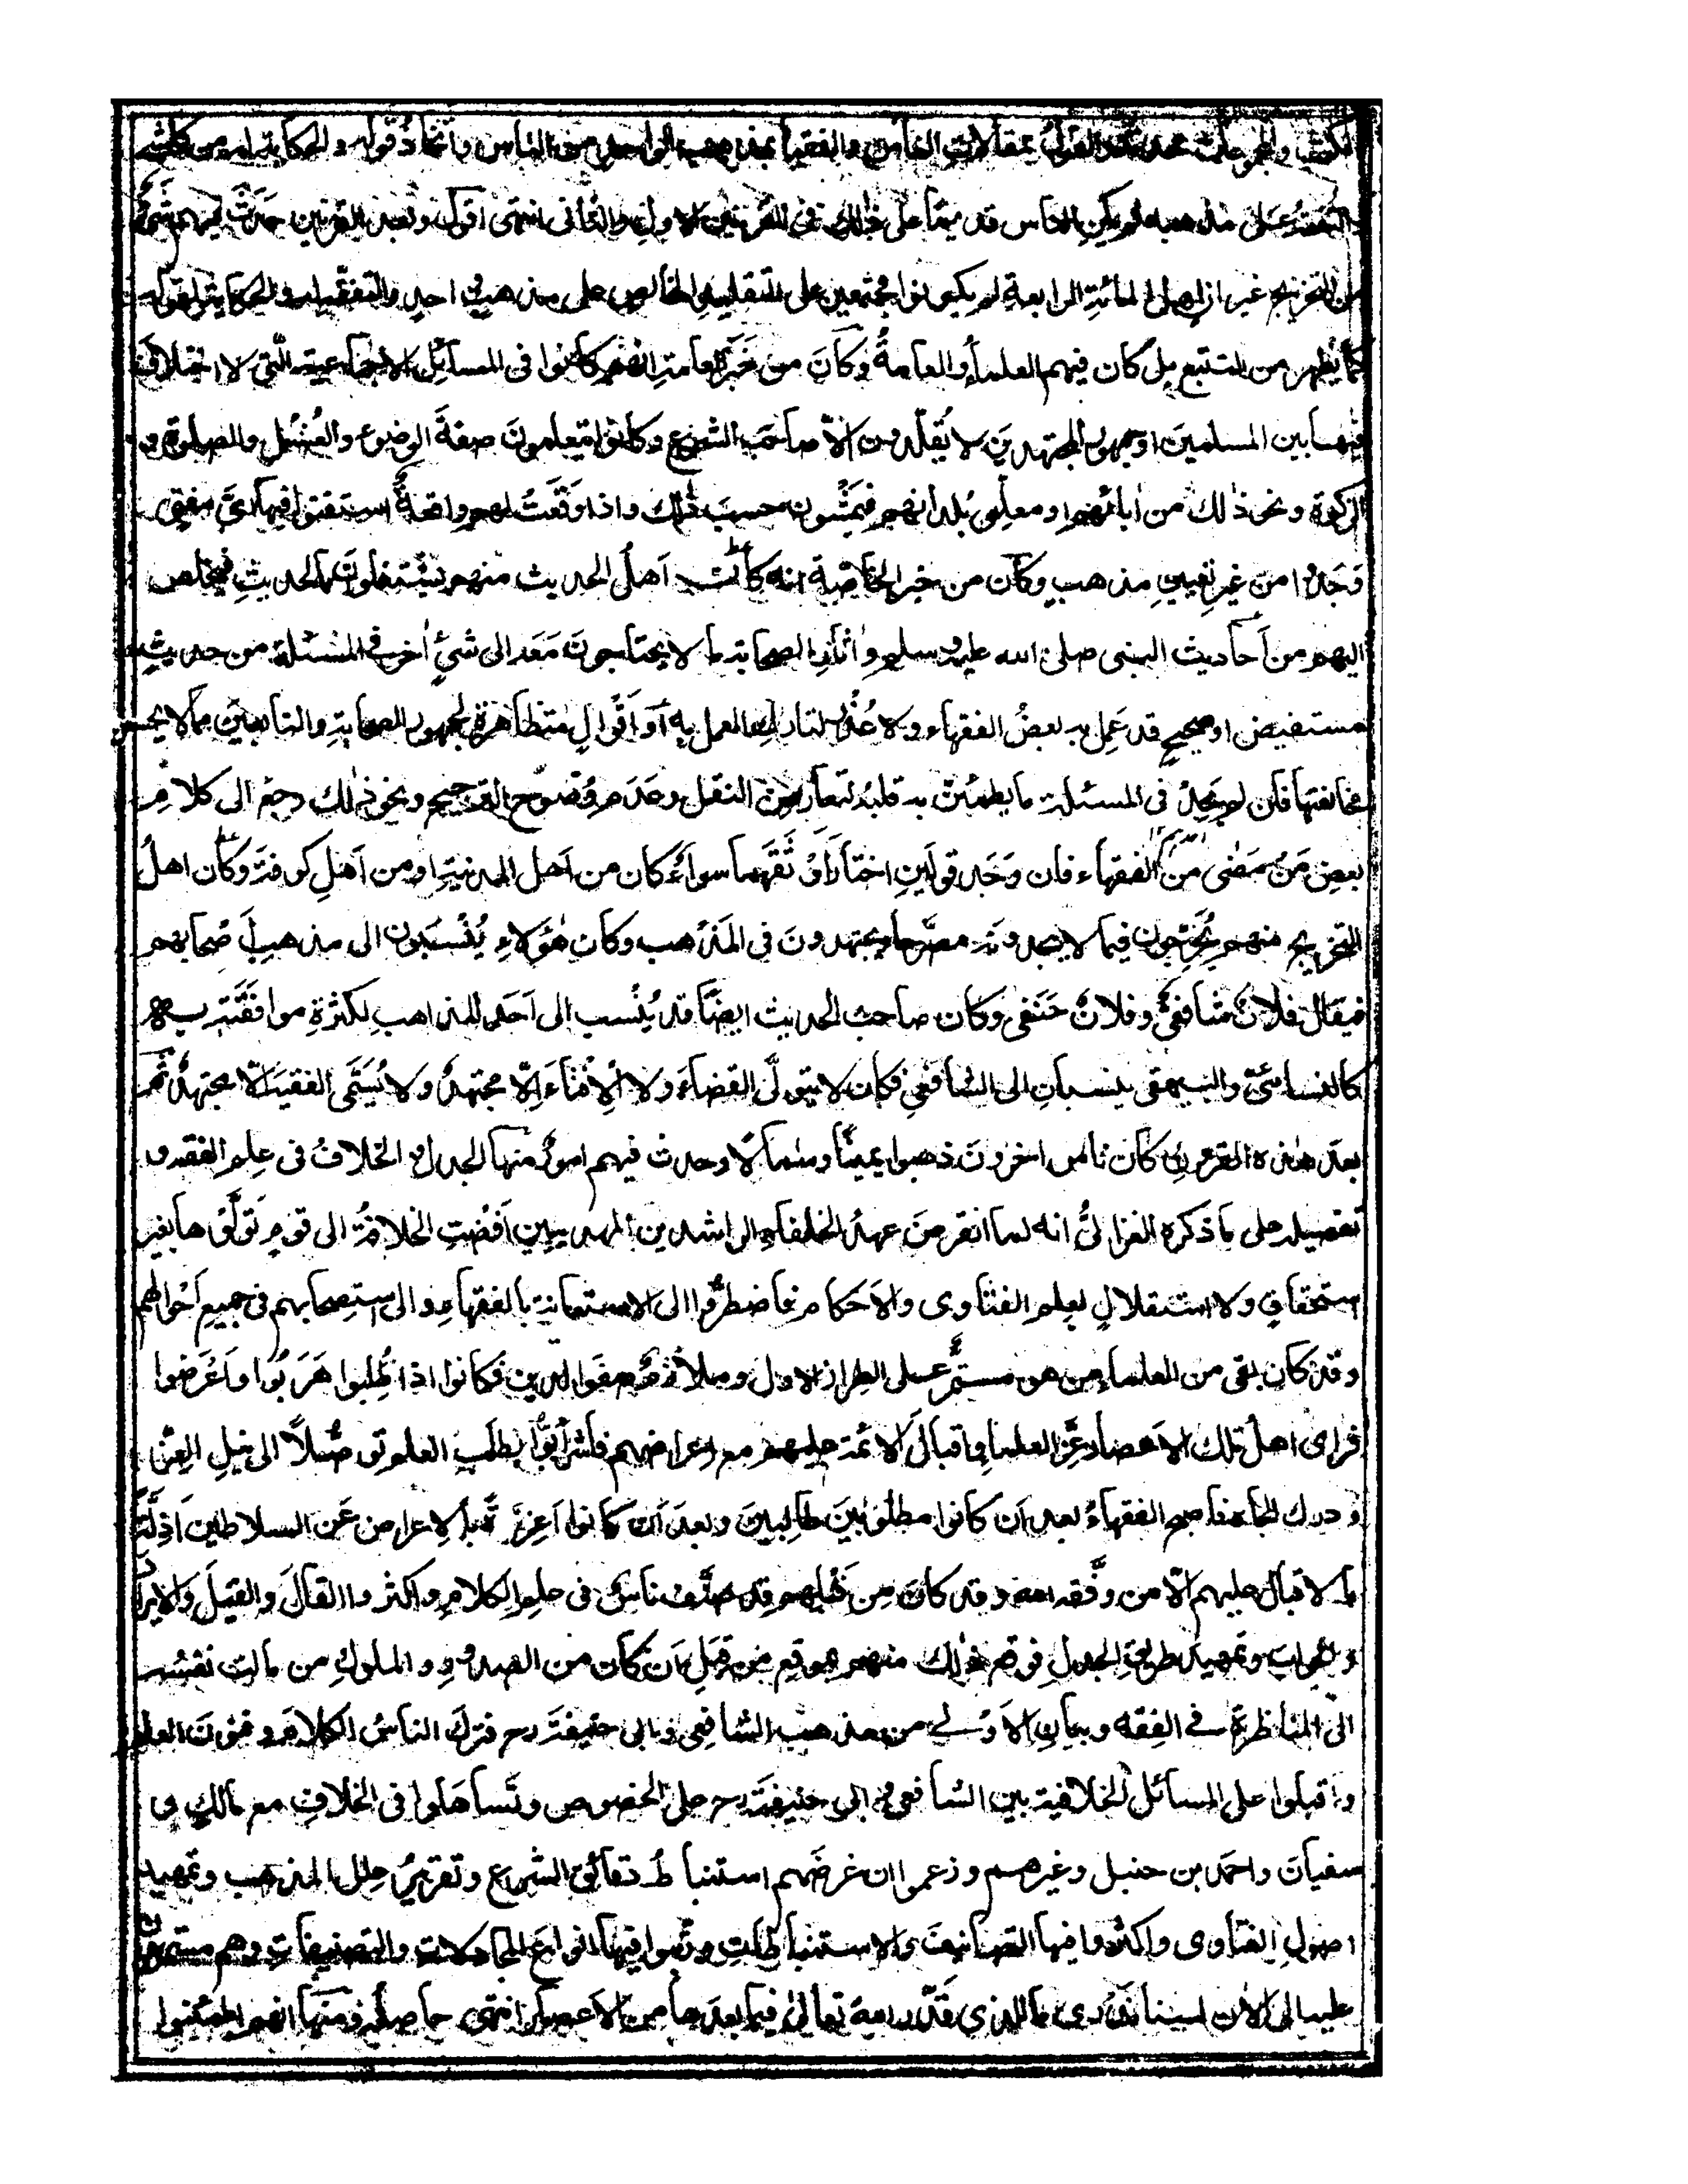 الكتب والمجموعات محدثة القول بمقالات الناس والفتيا بمذهب الواحد من الناس واتخاذُ قوله والحكاية له من كل شيء
والتفقهُ على مذهبه لم يكن الناس قديمًا على ذلك في القرنين الاول والثاني انتهى اقول وبعد القرنين حدثَ فيهم شيءٌ
من التخريج غير ان اهل المائة الرابعة لم يكونوا مجتمعين على التقليد الخالص على مذهب واحدٍ والتفقه له والحكاية لقوله
كما يظهر من التتبع بل كان فيهم العلماءُ والعامةُ وكانَ من خبر العامة انهم كانوا في المسائل الاجماعية التي لا اختلاف
فيها بين المسلمينَ او جمهور المجتهدين لا يُقلّدون الّا صاحبَ الشرع وكانوا يتعلمونَ صفةَ الوضوء والغُسُل والصلوة و
الزكوة ونحو ذلك من اٰبائهم او معلّمي بُلدانهم فيمشُون حسبَ ذلك واذا وقَعَتْ لهم واقعةٌ استفتوا فيها ايَّ مفتٍي
وَجَدُوا من غيرِ تعيينِ مذهبٍ وكان من خبر الخاصّة انه كان اَهلُ الحديث منهم يشتغلونَ بالحديثِ فيخلص
اليهم من اَحاديث النبي صلى الله عليه وسلم واٰثار الصحابة ما لا يحتاجونَ مَعَه الى شيءٍ اٰخر في المسئلة من حديثٍ
مستفيض او صحيحٍ قد عَمِل به بعضُ الفقهاء ولا عُذْرَ لتارك العمل به اَو اَقْوالٍ متظاهرة لجمهور الصحابةِ والتابعينَ مما لا يحسن
مخالفتها فان لم يجدْ في المسئلة ما يطمئنّ به قلبُه لتعارض النقل وعَدَمِ وُضوح الترجيح ونحو ذٰلك رجع الى كلام
بعضِ مَنْ مَضٰى من الفقهاء فان وَجَد قولَينِ اختارَ اَوْثَقَهما سواءٌ كان من اَهل المدينةِ او من اَهلِ كوفةَ وكان اهلُ
التخريج منهم يُخَرِّجون فيما لا يجدونَه مصرَّحا ويجتهدونَ في المَذهب وكان هٰؤلاءِ يُنْسَبون الى مذهبِ اَصحابهم
فيقال فلانٌ شافعيٌّ وفلانٌ حَنَفي وكان صاحبُ الحديث ايضًا قد يُنْسب الى اَحَدِ المذاهبِ لكثرةِ موافقَتِه به
كالنسائيّ والبيهقي ينسبانِ الى الشافعيِ فكان لا يتولّى القضاءَ ولا الاِفْتاءَ اِلّا مجتهدٌ ولا يُسَمّى الفقيهَ الّا مجتهدٌ ثم
بعدَ هٰذه القرونِ كان ناسٌ اٰخرُونَ ذهبوا يمينًا وشمالًا وحدث فيهم امورٌ منها الجدلُ والخلافُ في علمِ الفقه و
تفصيله على ما ذكره الغزاليُّ انه لما انقرضَ عهدُ الخلفاءِ الراشدين المهديين اَفْضتِ الخلافةُ الى قومٍ تَوَلَّوْها بغير
استحقاقٍ ولا استقلالٍ بعِلم الفتاوى والاَحكام فاضطرُّوا الى الاستعانة بالفقهاءِ والى استصحابهم في جميعِ اَحوالهم
وقد كان بقى من العلماء من هو مستمرٌّ على الطراز الاول وملازمٌ صفوَ الدين فكانوا اذا طُلِبوا هَرَبُوا واَعْرَضوا
فراى اهلُ تلك الاعصار عِزَّ العلماءِ واقبالَ الائمة عليهم مع اعراضهم فاشرأَبُّوا بطلَبِ العلم توصُّلاً الى نيلِ العِزّ
ودرك الجاه فاصبح الفقهاءُ بعد اَن كانوا مطلُوبينَ طالبينَ وبعدَ اَن كانوا اَعِزّةً بالاعراض عَن السلاطين اَذِلَّةً
بالاقبال عليهم الّا من وفَّقه الله وقد كان مِن قَبلهم قد صنَّف ناسٌ في علم الكلام واكثروا القالَ والقيلَ والايرادَ
والجوابَ وتمهيدَ طريق الجدلِ فوقع ذٰلك منهم بموقع من قبَلِ اَن كان من الصدورِ والملوك من مالت نفسُه
الى المناظرة في الفِقه وبيانِ الاَوْلى من مذهب الشافعي وابى حنيفةَ رح فترك الناسُ الكلامَ وفنونَ العلم
واقبلوا على المسائل الخلافية بين الشافعي وابى حنيفةَ رح على الخصوص وتَساهَلوا في الخلافِ مع مالكٍ و
سفيانَ واحمَد بن حنبل وغيرهم وزعموا ان غرضَهم استنباطُ دقائق الشرع وتقريرُ علل المذهب وتمهيد
اصولِ الفتاوى واكثروا فيها التصانيفَ والاستنباطاتِ ورتّبوا فيها انواعَ المجادلات والتصنيفات وهم مستمرونَ
عليه الى الاٰن لسنا ندري ما الذي قَدّر الله تعالىٰ فيما بعدها من الاَعصار انتهى حاصله ومنها انهم اطمئنوا